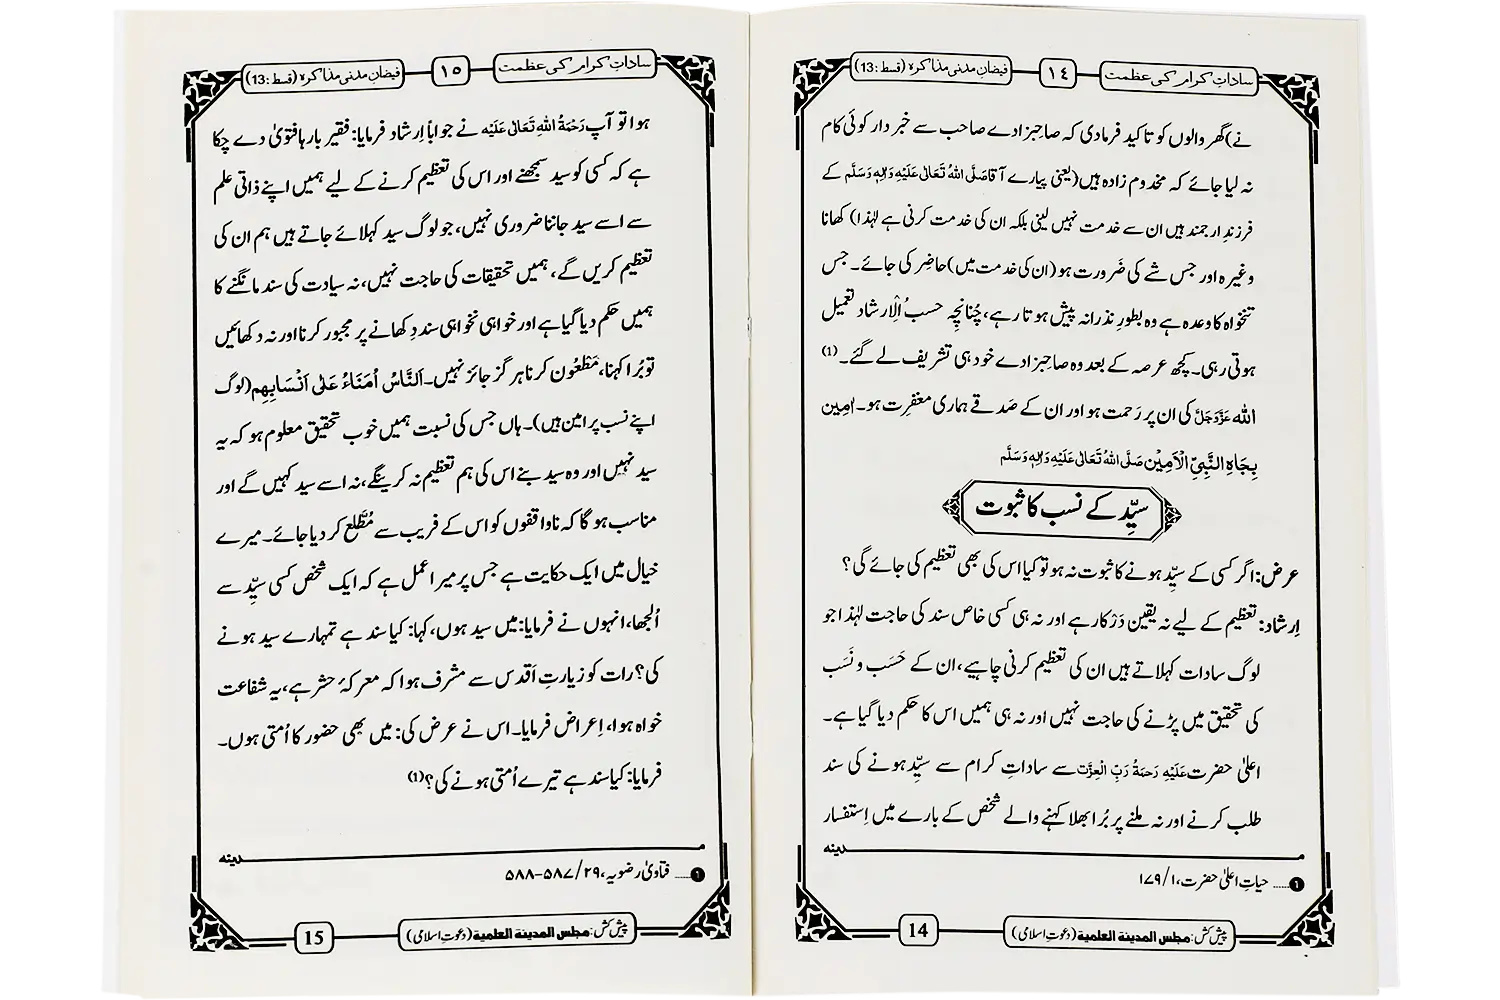 ساداتِ کرام کی عظمت
١٤
فیضانِ مدنی مذاکرہ (قسط :13)
نے) گھر والوں کو تاکید فرمادی کہ صاحبزادے صاحب سے خبر دار کوئی کام
نہ لیا جائے کہ مخدوم زادہ ہیں (یعنی پیارے آقا صَلَّی اللہُ تَعَالٰی عَلَیْہِ وَاٰلِہٖ وَسَلَّم کے
فرزندِ ارجمند ہیں ان سے خدمت نہیں لینی بلکہ ان کی خدمت کرنی ہے لہٰذا) کھانا
وغیرہ اور جس شے کی ضَرورت ہو (ان کی خدمت میں) حاضِر کی جائے۔ جس
تنخواہ کا وعدہ ہے وہ بطورِ نذرانہ پیش ہوتا رہے، چُنانچِہ حسبُ الْاِرشاد تعمیل
ہوتی رہی۔ کچھ عرصہ کے بعد وہ صاحبزادے خود ہی تشریف لے گئے۔ (1)
اللہ عَزَّوَجَلَّ کی ان پر رَحمت ہو اور ان کے صَدقے ہماری مغفرت ہو۔ اٰمِین
بِجَاہِ النَّبِیِّ الْاَمِیْن صَلَّی اللہُ تَعَالٰی عَلَیْہِ وَاٰلِہٖ وَسَلَّم
سیِّد کے نسب کا ثبوت
عرض: اگر کسی کے سیِّد ہونے کا ثبوت نہ ہو تو کیا اس کی بھی تعظیم کی جائے گی؟
اِرشاد: تعظیم کے لیے نہ یقین دَرْکار ہے اور نہ ہی کسی خاص سند کی حاجت لہٰذا جو
لوگ سادات کہلاتے ہیں ان کی تعظیم کرنی چاہیے، ان کے حَسَب و نَسَب
کی تحقیق میں پڑنے کی حاجت نہیں اور نہ ہی ہمیں اس کا حکم دیا گیا ہے۔
اعلیٰ حضرت عَلَیْہِ رَحمَۃُ رَبِّ الْعِزَّت سے ساداتِ کرام سے سیِّد ہونے کی سند
طلب کرنے اور نہ ملنے پر بُرا بھلا کہنے والے شخص کے بارے میں اِستفسار
مدینہ
1 ..... حیاتِ اعلیٰ حضرت، ١/ ١٧٩
پیش کش: مجلس المدینۃ العلمیۃ (دعوتِ اسلامی)
14
ساداتِ کرام کی عظمت
١٥
فیضانِ مدنی مذاکرہ (قسط :13)
ہوا تو آپ رَحْمَۃُ اللہِ تَعَالٰی عَلَیْہ نے جواباً اِرشاد فرمایا: فقیر بارہا فتویٰ دے چکا
ہے کہ کسی کو سید سمجھنے اور اس کی تعظیم کرنے کے لیے ہمیں اپنے ذاتی علم
سے اسے سید جاننا ضروری نہیں، جو لوگ سید کہلائے جاتے ہیں ہم ان کی
تعظیم کریں گے، ہمیں تحقیقات کی حاجت نہیں، نہ سیادت کی سند مانگنے کا
ہمیں حکم دیا گیا ہے اور خواہی نخواہی سند دِکھانے پر مجبور کرنا اور نہ دکھائیں
تو بُرا کہنا، مَطْعُون کرنا ہر گز جائز نہیں۔ اَلنَّاسُ اُمَنَاءُ عَلٰی اَنْسَابِھِم (لوگ
اپنے نسب پر امین ہیں)۔ ہاں جس کی نسبت ہمیں خوب تحقیق معلوم ہو کہ یہ
سید نہیں اور وہ سید بنے اس کی ہم تعظیم نہ کرینگے، نہ اسے سید کہیں گے اور
مناسب ہو گا کہ ناواقفوں کو اس کے فریب سے مُطَّلع کر دیا جائے۔ میرے
خیال میں ایک حکایت ہے جس پر میرا عمل ہے کہ ایک شخص کسی سیِّد سے
اُلجھا، انہوں نے فرمایا: میں سید ہوں، کہا: کیا سند ہے تمہارے سید ہونے
کی؟ رات کو زیارتِ اَقدس سے مشرف ہوا کہ معرکۂ حشر ہے، یہ شفاعت
خواہ ہوا، اِعراض فرمایا۔ اس نے عرض کی: میں بھی حضور کا اُمتی ہوں۔
فرمایا: کیا سند ہے تیرے اُمتی ہونے کی؟ (1)
مدینہ
1 ..... فتاویٰ رضویہ، ٢٩/ ٥٨٧–٥٨٨
پیش کش: مجلس المدینۃ العلمیۃ (دعوتِ اسلامی)
15